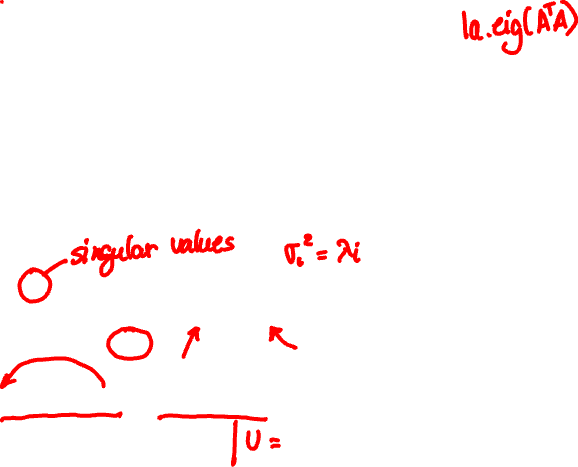 la.eig(AᵀA)
singular values σᵢ² = λi
U =